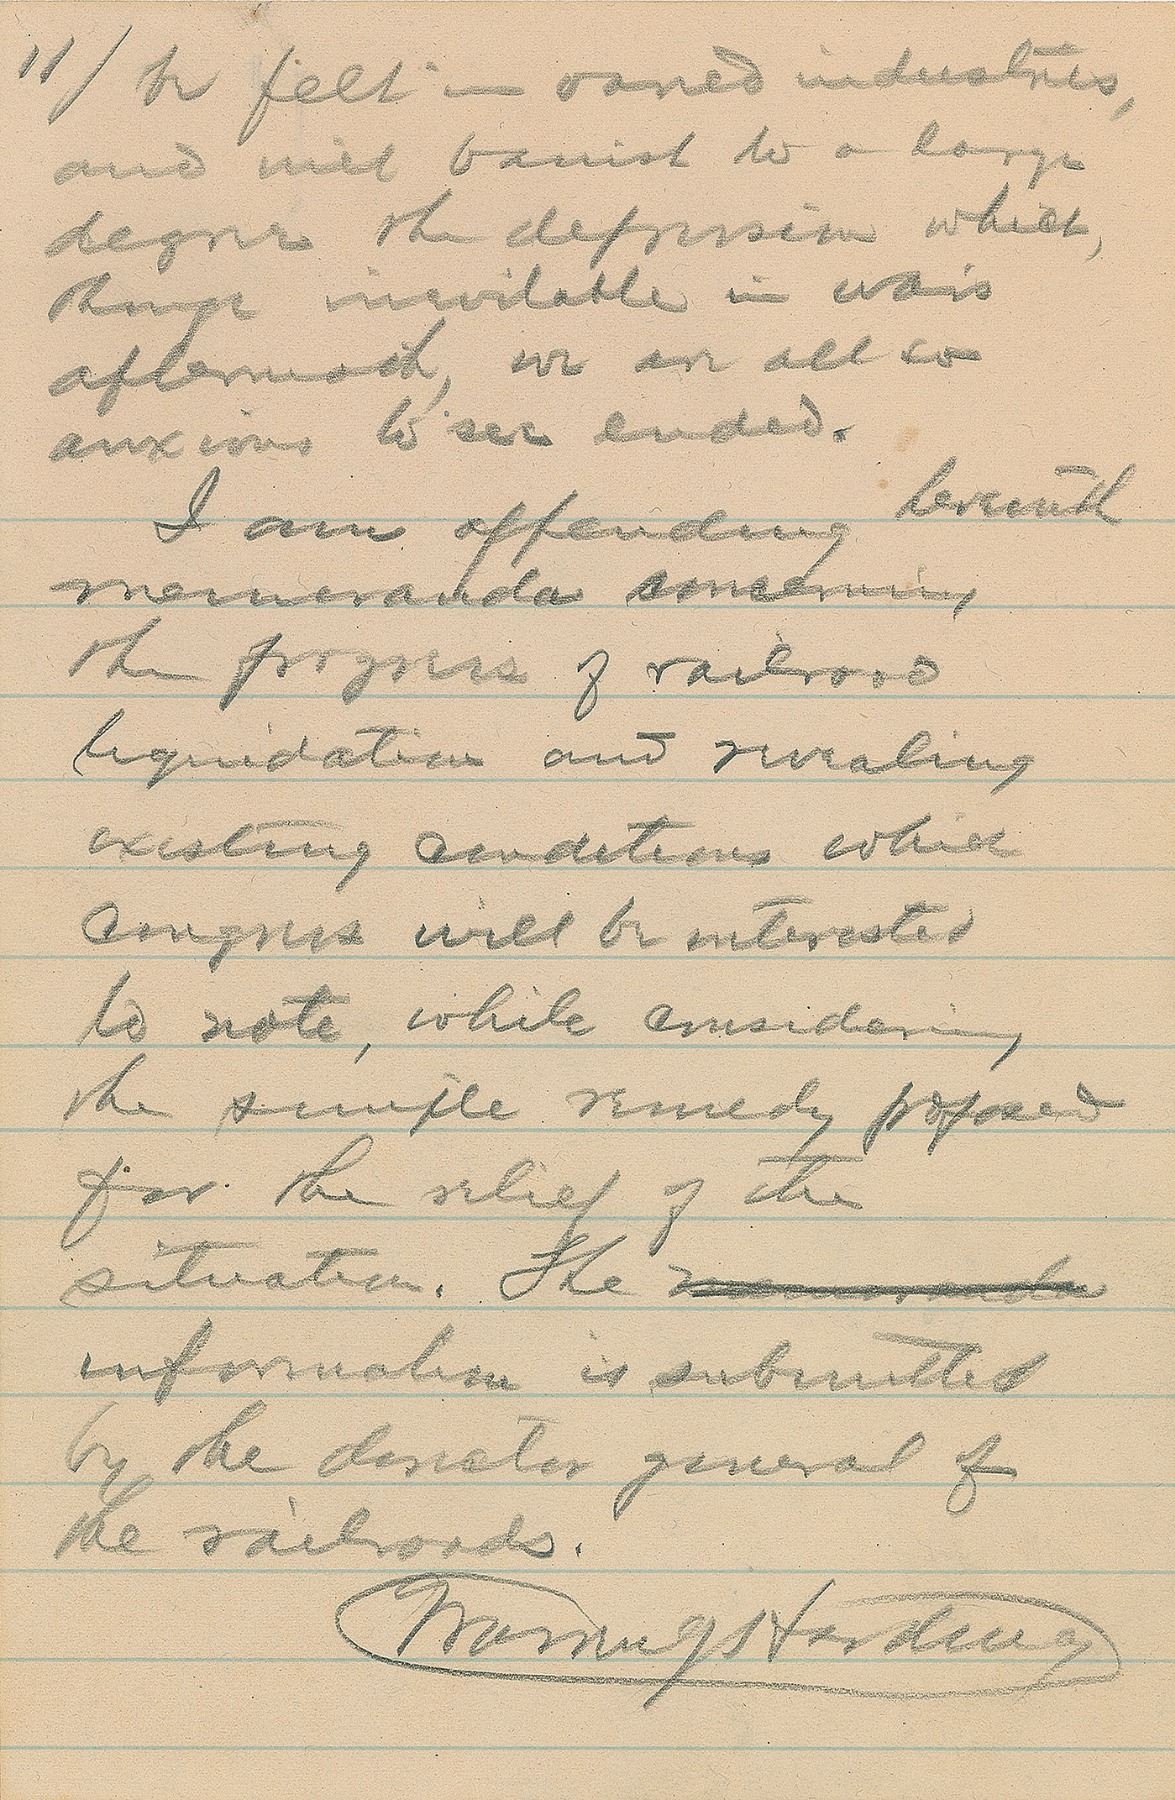 11/ be felt in varied industries,
and will banish to a large
degree the depression which,
though inevitable in war's
aftermath, we are all so
anxious to see ended.
I am appending herewith
memoranda concerning
the progress of railroad
liquidation and revealing
existing conditions which
Congress will be interested
to note, while considering
the simple remedy proposed
for the relief of the
situation. The memoranda
information is submitted
by the director general of
the railroads.
Warren G Harding